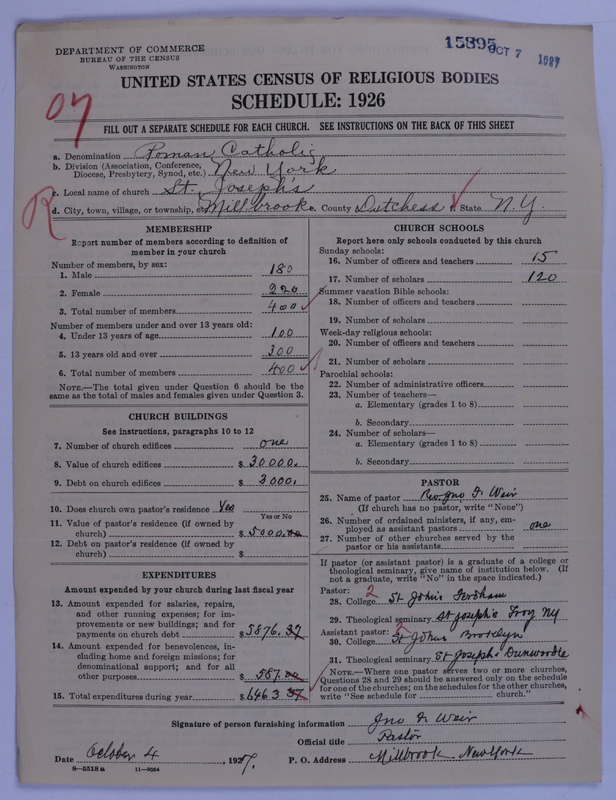 DEPARTMENT OF COMMERCE
BUREAU OF THE CENSUS
WASHINGTON
15395 OCT 7 1927
UNITED STATES CENSUS OF RELIGIOUS BODIES
SCHEDULE: 1926
FILL OUT A SEPARATE SCHEDULE FOR EACH CHURCH. SEE INSTRUCTIONS ON THE BACK OF THIS SHEET
a. Denomination Roman Catholic
b. Division (Association, Conference, Diocese, Presbytery, Synod, etc.) New York
c. Local name of church St. Joseph's
d. City, town, village, or township, etc. Millbrook e. County Dutchess f. State N.Y.
R
MEMBERSHIP
Report number of members according to definition of
member in your church
Number of members, by sex:
1. Male 180
2. Female 220
3. Total number of members 400
Number of members under and over 13 years old:
4. Under 13 years of age 100
5. 13 years old and over 300
6. Total number of members 400
NOTE.—The total given under Question 6 should be the
same as the total of males and females given under Question 3.
CHURCH BUILDINGS
See instructions, paragraphs 10 to 12
7. Number of church edifices one
8. Value of church edifices $ 30000.
9. Debt on church edifices $ 3000.
10. Does church own pastor's residence? Yes
Yes or No
11. Value of pastor's residence (if owned by
church) $ 5000.00
12. Debt on pastor's residence (if owned by
church) $
EXPENDITURES
Amount expended by your church during last fiscal year
13. Amount expended for salaries, repairs,
and other running expenses; for im-
provements or new buildings; and for
payments on church debt $ 5876.37
14. Amount expended for benevolences, in-
cluding home and foreign missions; for
denominational support; and for all
other purposes $ 587.00
15. Total expenditures during year $ 6463.37
CHURCH SCHOOLS
Report here only schools conducted by this church
Sunday schools:
16. Number of officers and teachers 15
17. Number of scholars 120
Summer vacation Bible schools:
18. Number of officers and teachers
19. Number of scholars
Week-day religious schools:
20. Number of officers and teachers
21. Number of scholars
Parochial schools:
22. Number of administrative officers
23. Number of teachers—
a. Elementary (grades 1 to 8)
b. Secondary
24. Number of scholars—
a. Elementary (grades 1 to 8)
b. Secondary
PASTOR
25. Name of pastor Rev Jno F Weir
(If church has no pastor, write "None")
26. Number of ordained ministers, if any, em-
ployed as assistant pastors one
27. Number of other churches served by the
pastor or his assistants
If pastor (or assistant pastor) is a graduate of a college or
theological seminary, give name of institution below. (If
not a graduate, write "No" in the space indicated.)
Pastor: 2
28. College St John's Fordham
29. Theological seminary St Joseph's Troy NY
Assistant pastor:
30. College St Johns Brooklyn
31. Theological seminary St Joseph's Dunwoodie
NOTE.—Where one pastor serves two or more churches,
Questions 28 and 29 should be answered only on the schedule
for one of the churches; on the schedules for the other churches,
write "See schedule for church."
Signature of person furnishing information Jno F Weir
Official title Pastor
Date October 4, 1927. P. O. Address Millbrook New York
8—5318a 11—9054